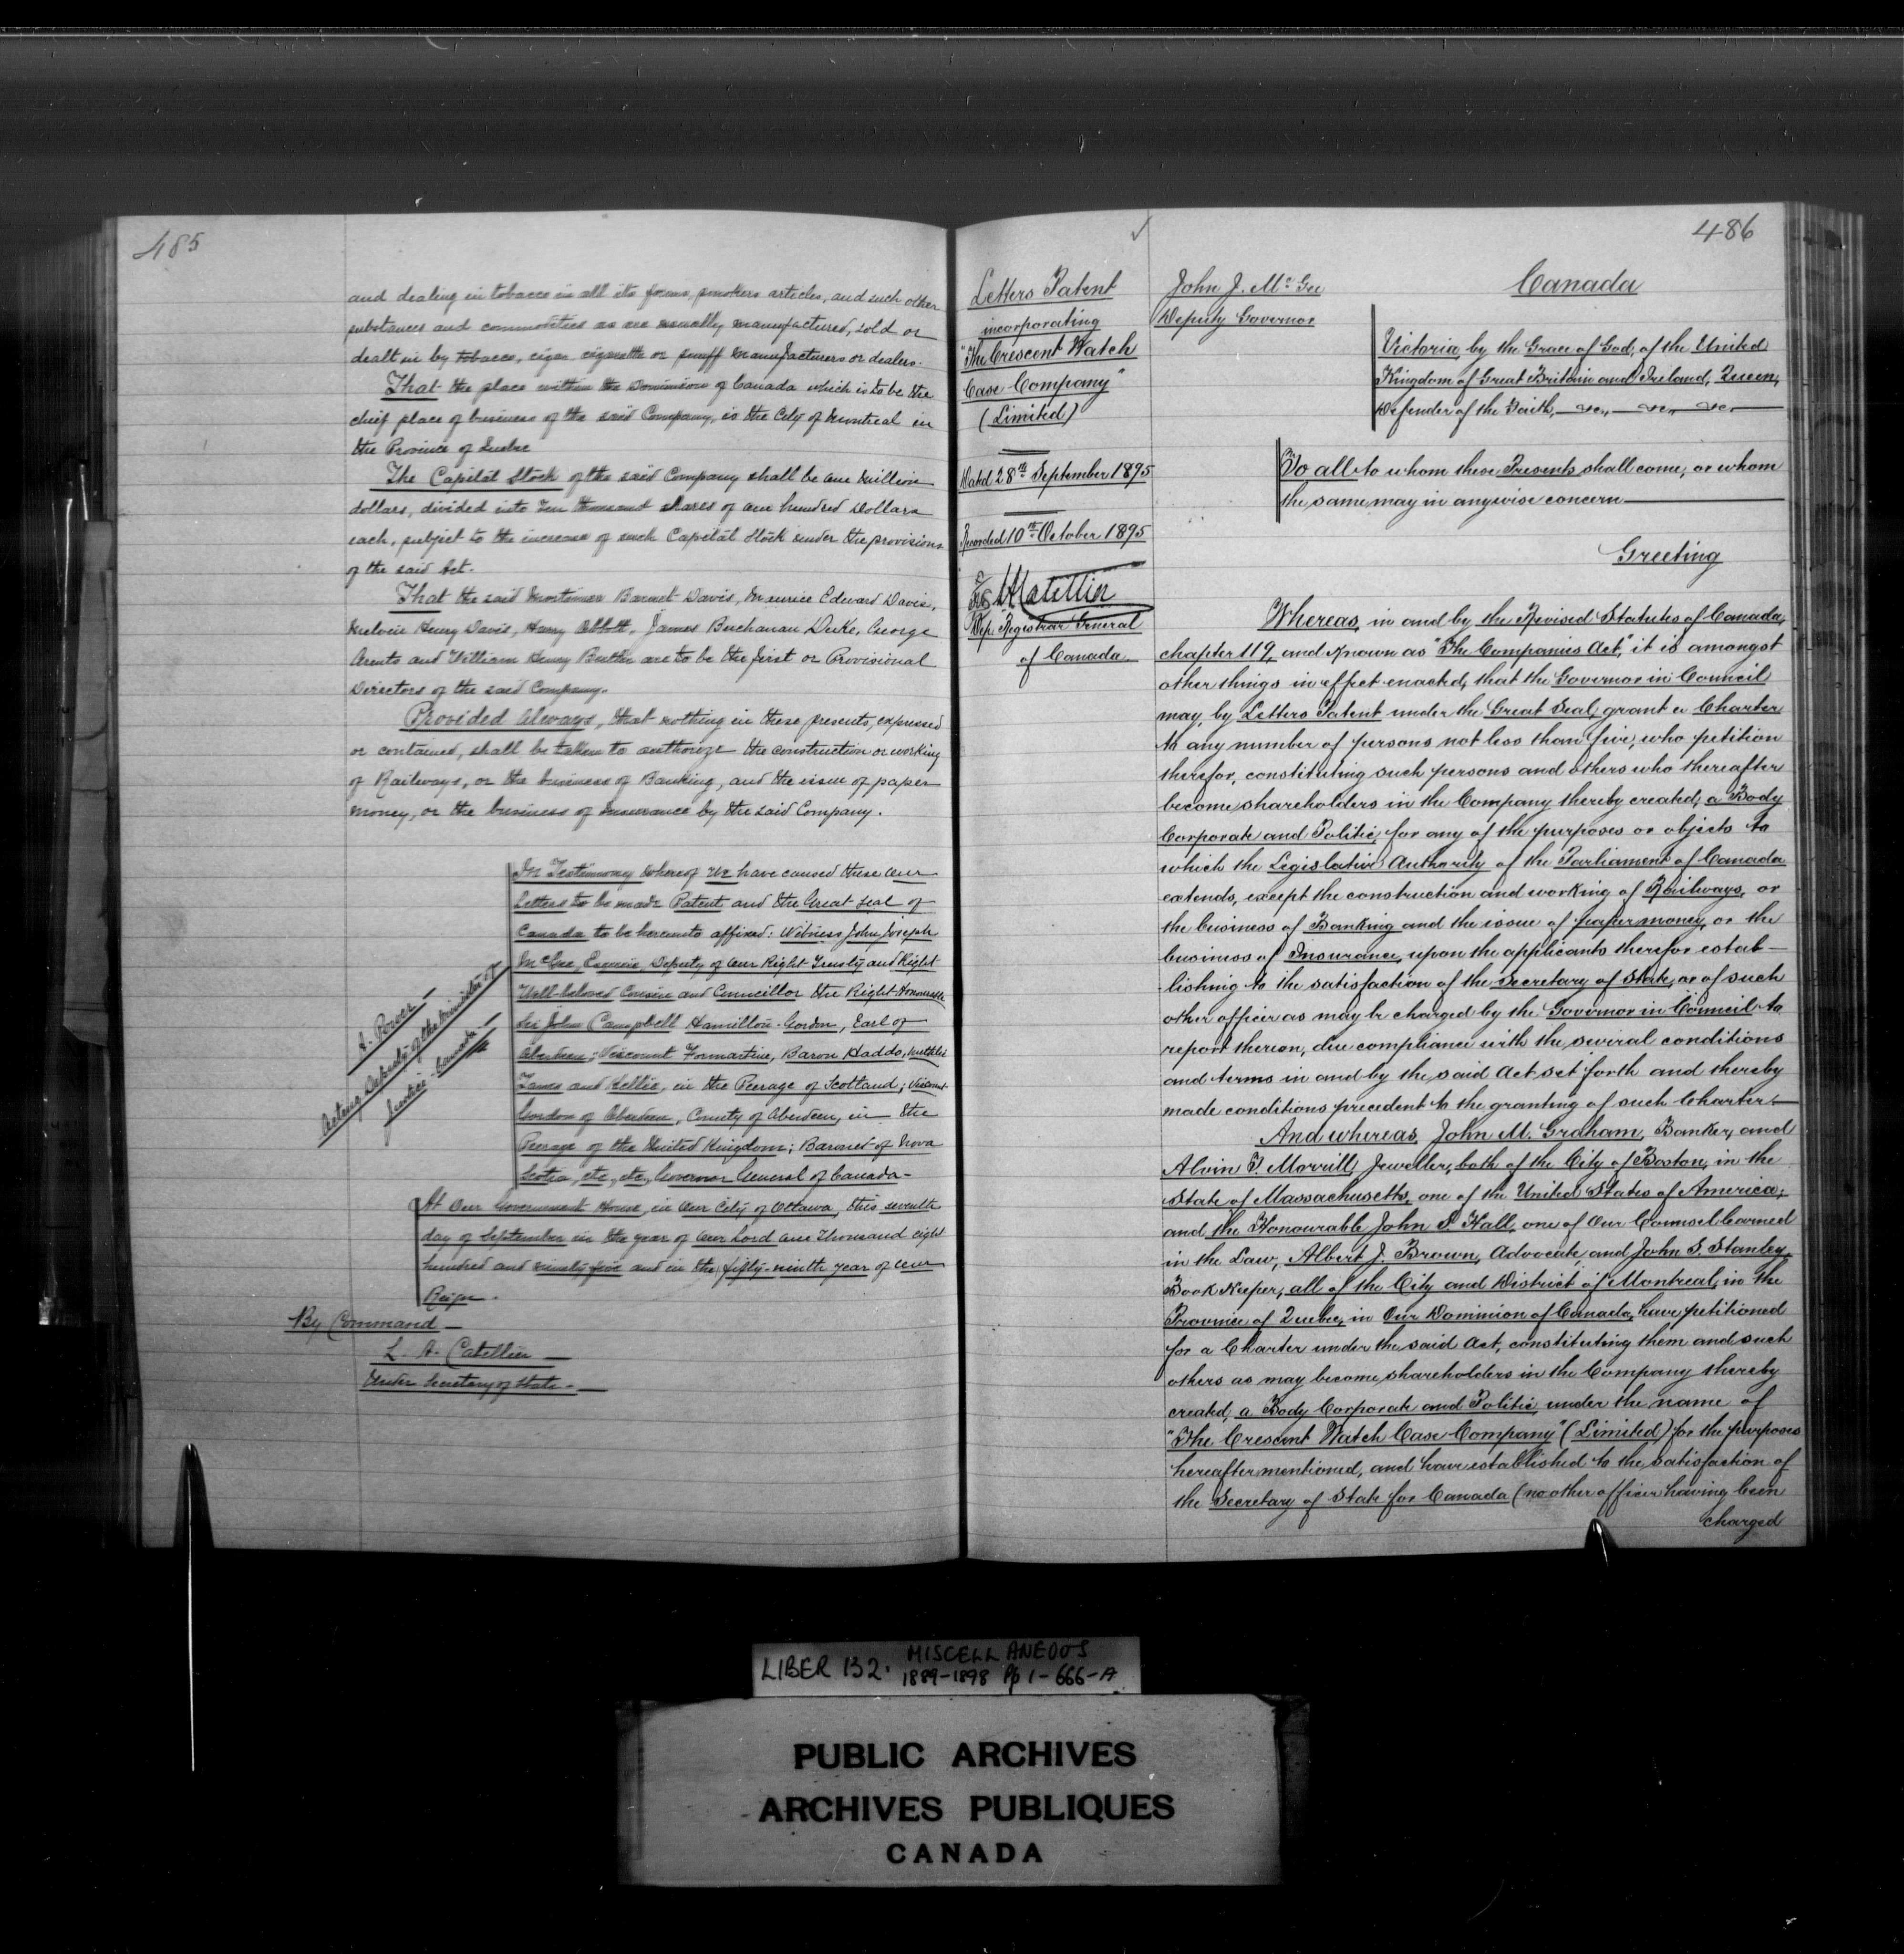 485
and dealing in tobacco in all its forms, smokers articles, and such other
substances and commodities as are usually manufactured, sold or
dealt in by tobacco, cigar cigarette or snuff manufacturers or dealers.
That the place within the Dominion of Canada which is to be the
chief place of business of the said Company, is the City of Montreal in
the Province of Quebec
The Capital Stock of the said Company shall be one million
dollars, divided into Ten thousand shares of one hundred Dollars
each, subject to the increase of such Capital Stock under the provisions
of the said Act.
That the said Mortimer Barnet Davis, Maurice Edward Davis,
Melvin Henry Davis, Harry Abbott, James Buchanan Duke, George
Arents and William Henry Butler are to be the first or Provisional
Directors of the said Company.
Provided always, that nothing in these presents, expressed
or contained, shall be taken to authorize the construction or working
of Railways, or the business of Banking, and the issue of paper
money, or the business of Insurance by the said Company.
In Testimony whereof We have caused these Our
Letters to be made Patent and the Great Seal of
Canada to be hereunto affixed: Witness John Joseph
McGee, Esquire, Deputy of Our Right Trusty and Right
Well-beloved Cousin and Councillor the Right Honourable
Sir John Campbell Hamilton-Gordon, Earl of
Aberdeen; Viscount Formartine, Baron Haddo, Methlic
Tarves and Kellie, in the Peerage of Scotland; Viscount
Gordon of Aberdeen, County of Aberdeen, in the
Peerage of the United Kingdom; Baronet of Nova
Scotia, etc, etc, Governor General of Canada-
At Our Government House, in Our City of Ottawa, this seventh
day of September in the year of Our Lord One Thousand eight
hundred and ninety five and in the fifty-ninth year of Our
Reign.
A. Power-
Acting Deputy of the Minister of
Justice Canada-
By Command-
L. A. Catellier-
Under Secretary of State.-
486
Letters Patent
incorporating
"The Crescent Watch
Case Company"
(Limited)
Dated 28th September 1895
Recorded 10th October 1895
LACatellier
Dep. Registrar General
of Canada.
John J. McGee
Deputy Governor
Canada
Victoria by the Grace of God, of the United
Kingdom of Great Britain and Ireland, Queen,
Defender of the Faith, &c, &c, &c,
To all to whom these Presents shall come, or whom
the same may in anywise concern
Greeting
Whereas, in and by the Revised Statutes of Canada,
chapter 119, and known as "The Companies Act," it is amongst
other things in effect enacted, that the Governor in Council
may, by Letters Patent under the Great Seal, grant a Charter
to any number of persons not less than five, who petition
therefor, constituting such persons and others who thereafter
become shareholders in the Company thereby created, a Body
Corporate and Politic, for any of the purposes or objects to
which the Legislative Authority of the Parliament of Canada
extends, except the construction and working of Railways, or
the business of Banking and the issue of paper money, or the
business of Insurance, upon the applicants therefor estab-
lishing to the satisfaction of the Secretary of State, or of such
other officer as may be charged by the Governor in Council to
report thereon, due compliance with the several conditions
and terms in and by the said Act set forth and thereby
made conditions precedent to the granting of such Charter.
And whereas, John M. Graham, Banker, and
Alvin T. Morrill, Jeweller, both of the City of Boston, in the
State of Massachusetts, one of the United States of America;
and the Honourable John S. Hall, one of Our Counsel learned
in the Law, Albert J. Brown, Advocate, and John S. Stanley,
Book Keeper, all of the City and District of Montreal, in the
Province of Quebec, in Our Dominion of Canada, have petitioned
for a Charter under the said Act, constituting them and such
others as may become shareholders in the Company thereby
created, a Body Corporate and Politic, under the name of
"The Crescent Watch Case Company" (Limited) for the purposes
hereafter mentioned, and have established to the satisfaction of
the Secretary of State for Canada (no other officer having been
charged
LIBER 132. MISCELLANEOUS
1889-1898 Pp 1-666-A
PUBLIC ARCHIVES
ARCHIVES PUBLIQUES
CANADA